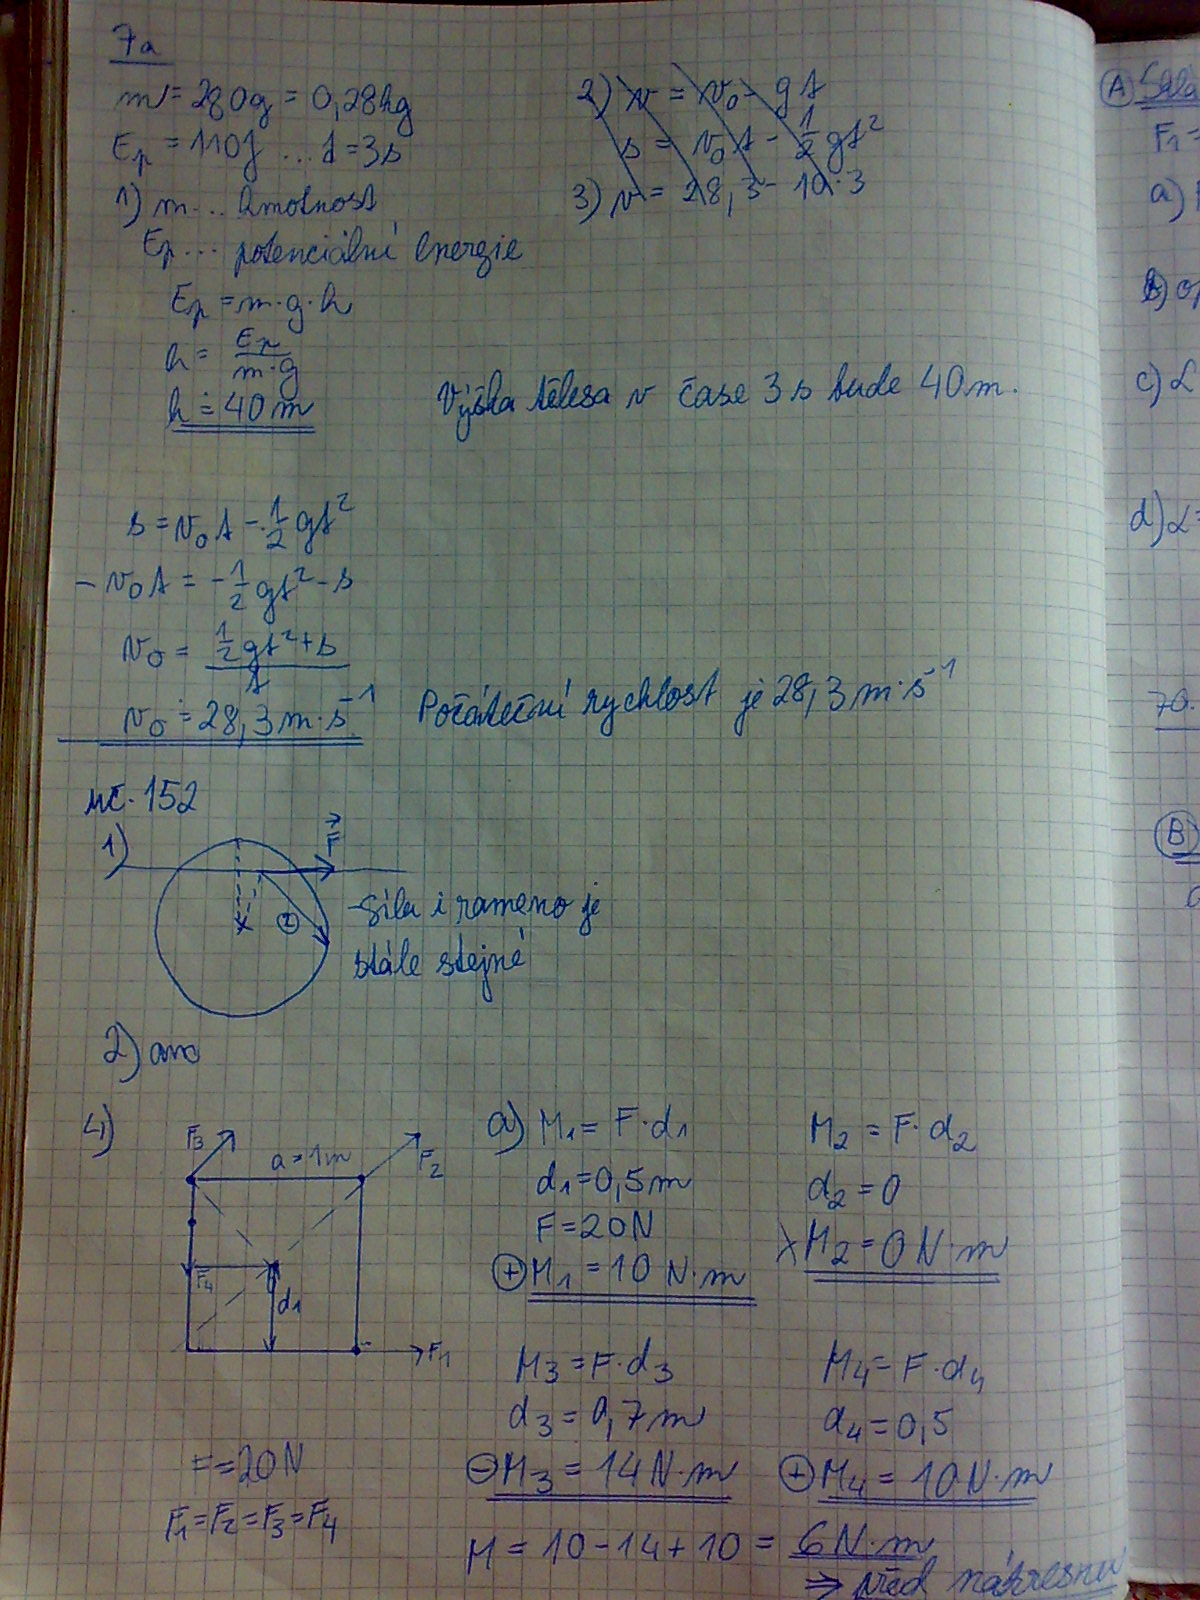 7a
m = 280g = 0,28kg
Ep = 110J ... t = 3s
1) m ... hmotnost
Ep ... potenciální energie
Ep = m·g·h
h = Ep / m·g
h ≐ 40 m
2) v = v₀ - gt
s = v₀t - 1/2 gt²
3) v = 28,3 - 10·3
Výška tělesa v čase 3 s bude 40 m.
s = v₀t - 1/2 gt²
- v₀t = - 1/2 gt² - s
v₀ = 1/2 gt² + s / t
v₀ ≐ 28,3 m·s⁻¹
Počáteční rychlost je 28,3 m·s⁻¹
uč. 152
1)
F
2
-síla i rameno je
stále stejné
2) ano
4)
F3
a = 1m
F2
F4
d1
F1
F = 20N
F1 = F2 = F3 = F4
a) M1 = F·d1
d1 = 0,5 m
F = 20N
⊕ M1 = 10 N·m
M2 = F·d2
d2 = 0
M2 = 0 N·m
M3 = F·d3
d3 = 0,7 m
⊖ M3 = 14 N·m
M4 = F·d4
d4 = 0,5
⊕ M4 = 10 N·m
M = 10 - 14 + 10 = 6 N·m
⇒ před nákresnu
A
F1 =
a)
b)
c)
d)
B